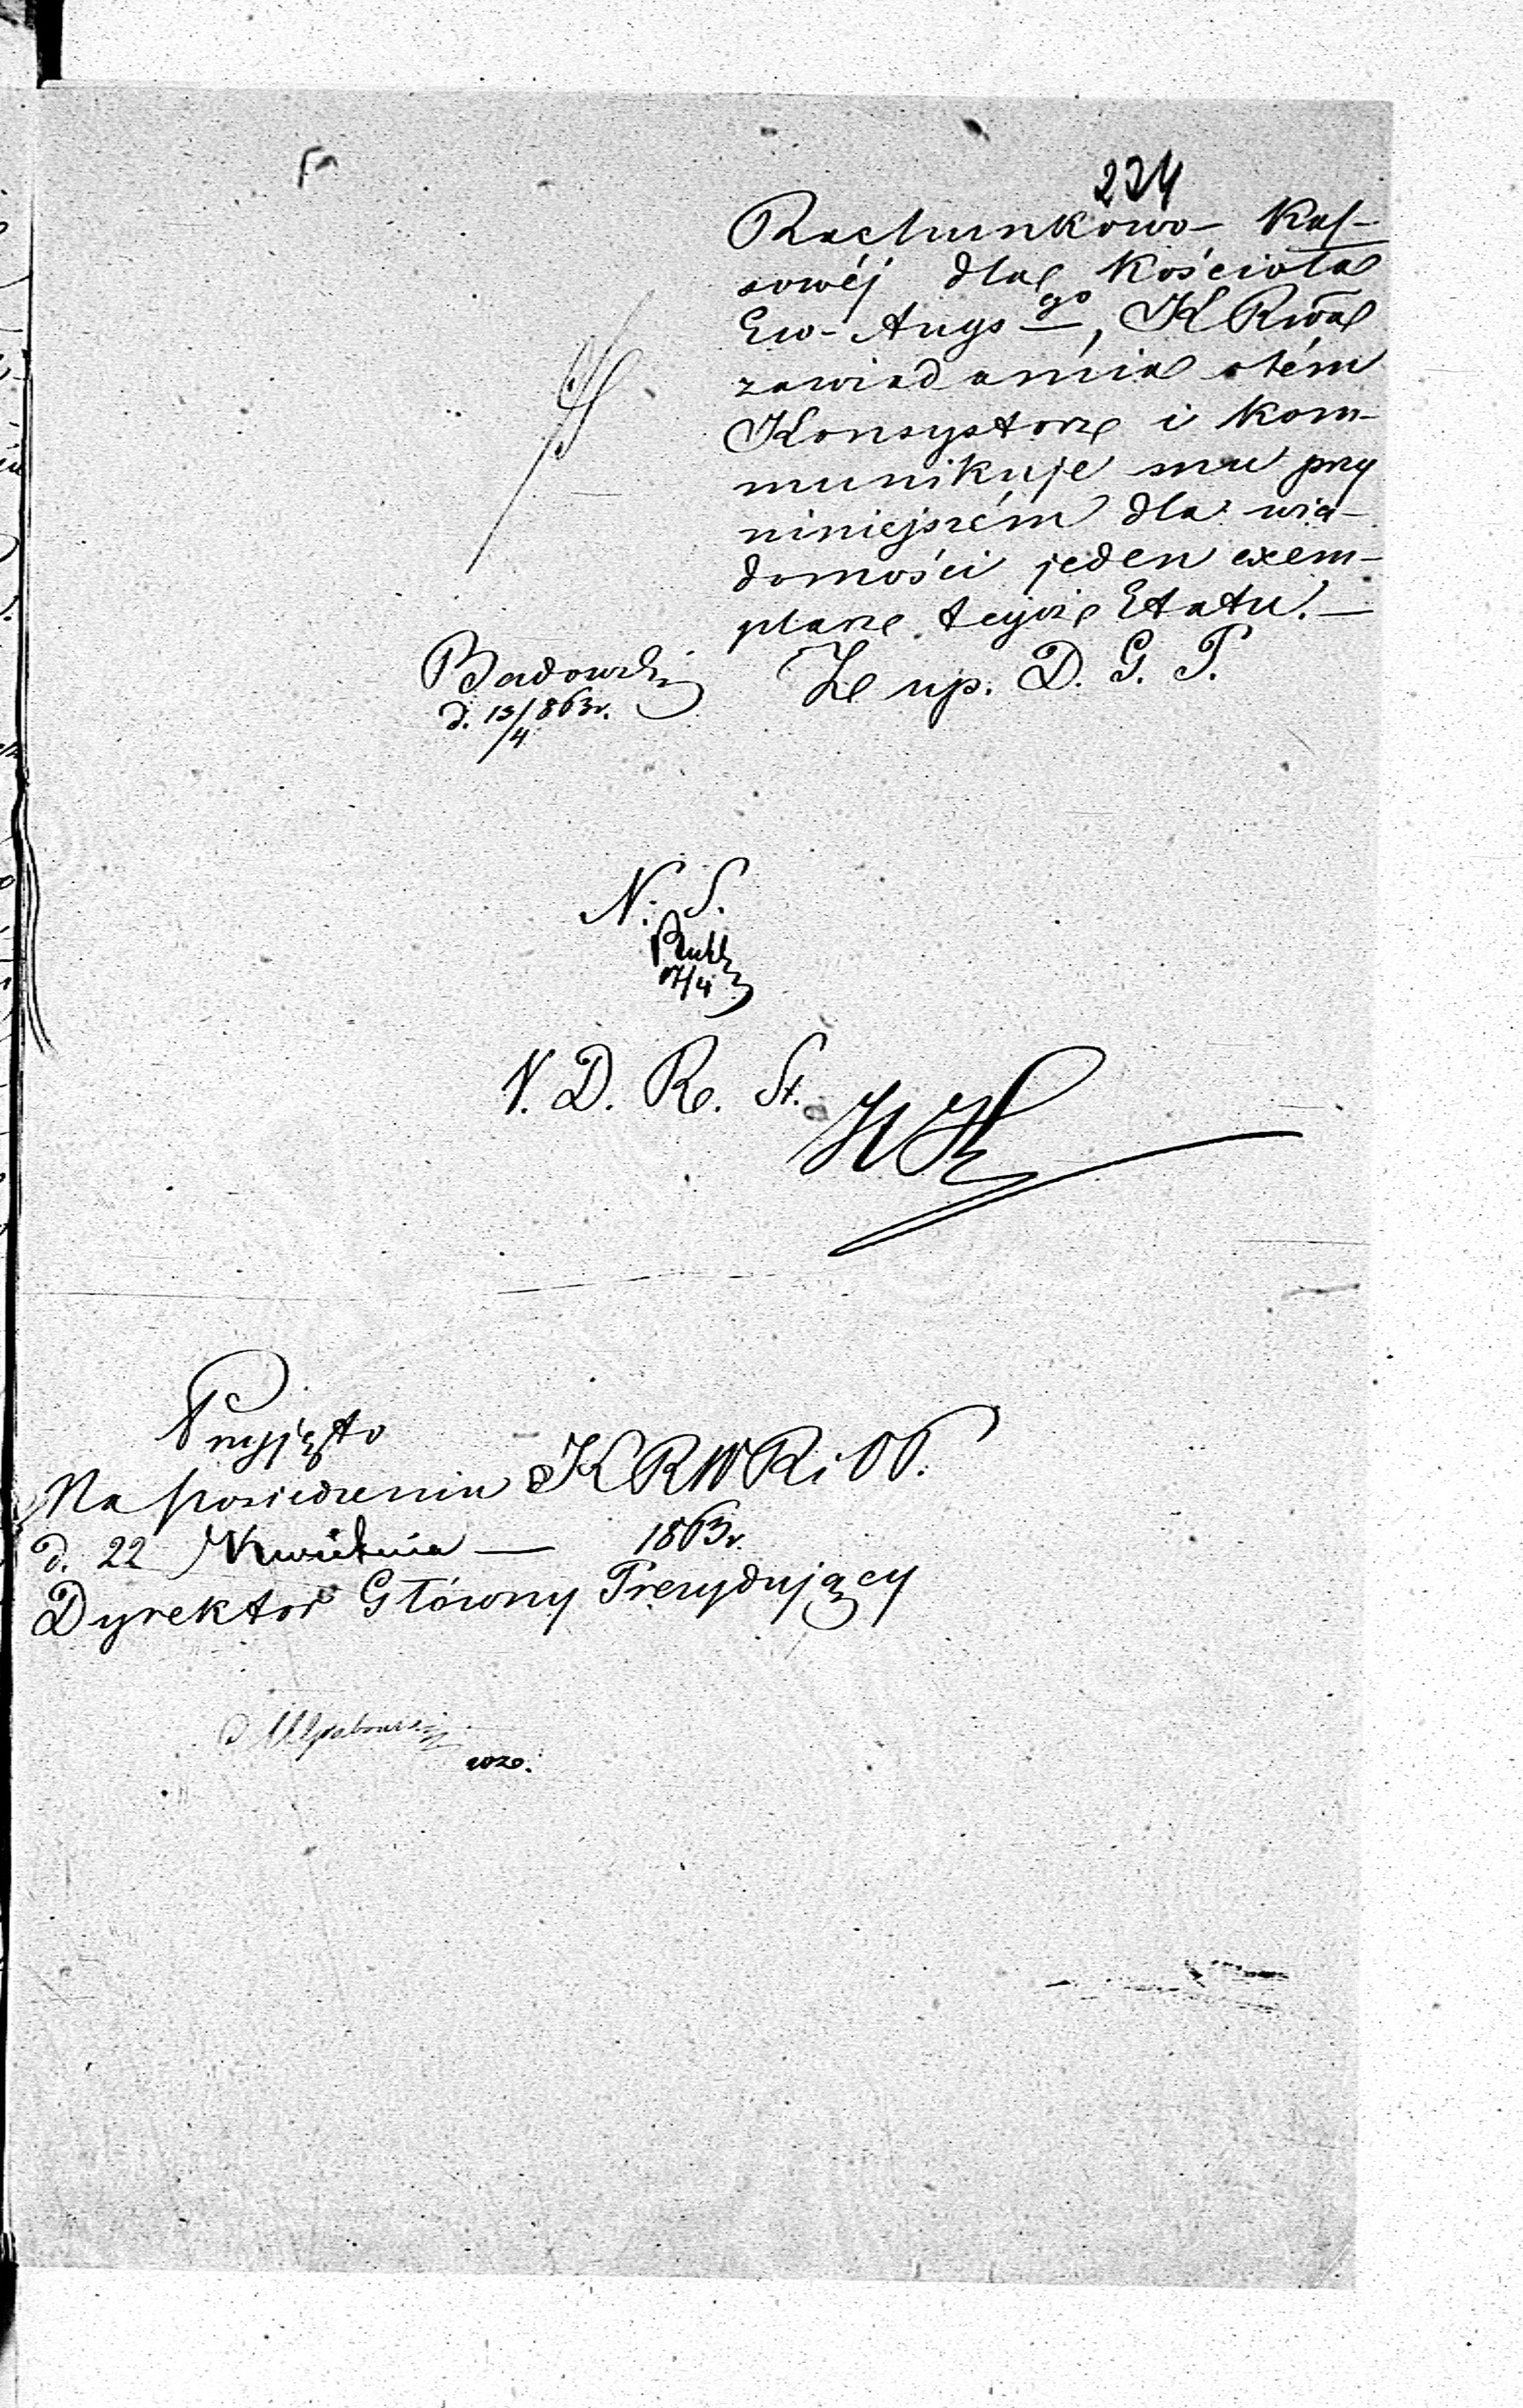 234
Rachunkowo- Kas-
sowéj dla Kościoła
Ew- Augs go, K Rwa
zawiadamia otém
Konsystorz i kom-
munikuje mu przy
niniejszém dla wia-
domości jeden exem-
plarz tegoż Etatu. —
Badowski Z up. D. G. P.
d. 13/4 863 r.
N. S.
17/4
N. D. R. St.
Przyjęto
Na posiedzeniu KRWRiOP.
d. 22 Kwietnia — 1863 r.
Dyrektor Główny Prezydujący